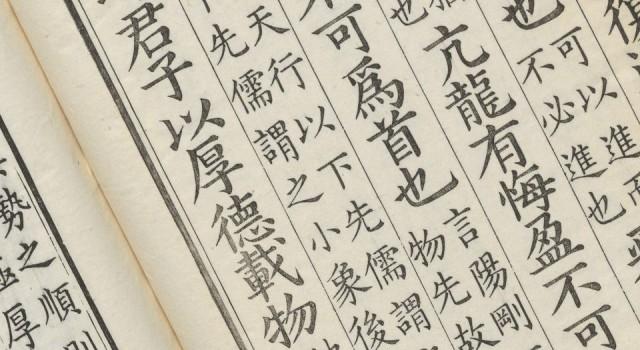 也
可以進
不必進也
亢龍有悔盈不可
可爲首也
言陽剛
物先故
天行以下先儒謂
先儒謂之小象後
君子以厚德載物
勢之順則
極厚